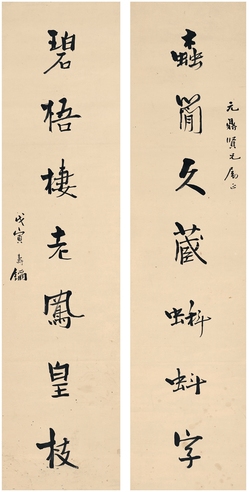 元鼎賢兄屬正
蠹簡久藏蝌蚪字
碧梧棲老鳳皇枝
戊寅